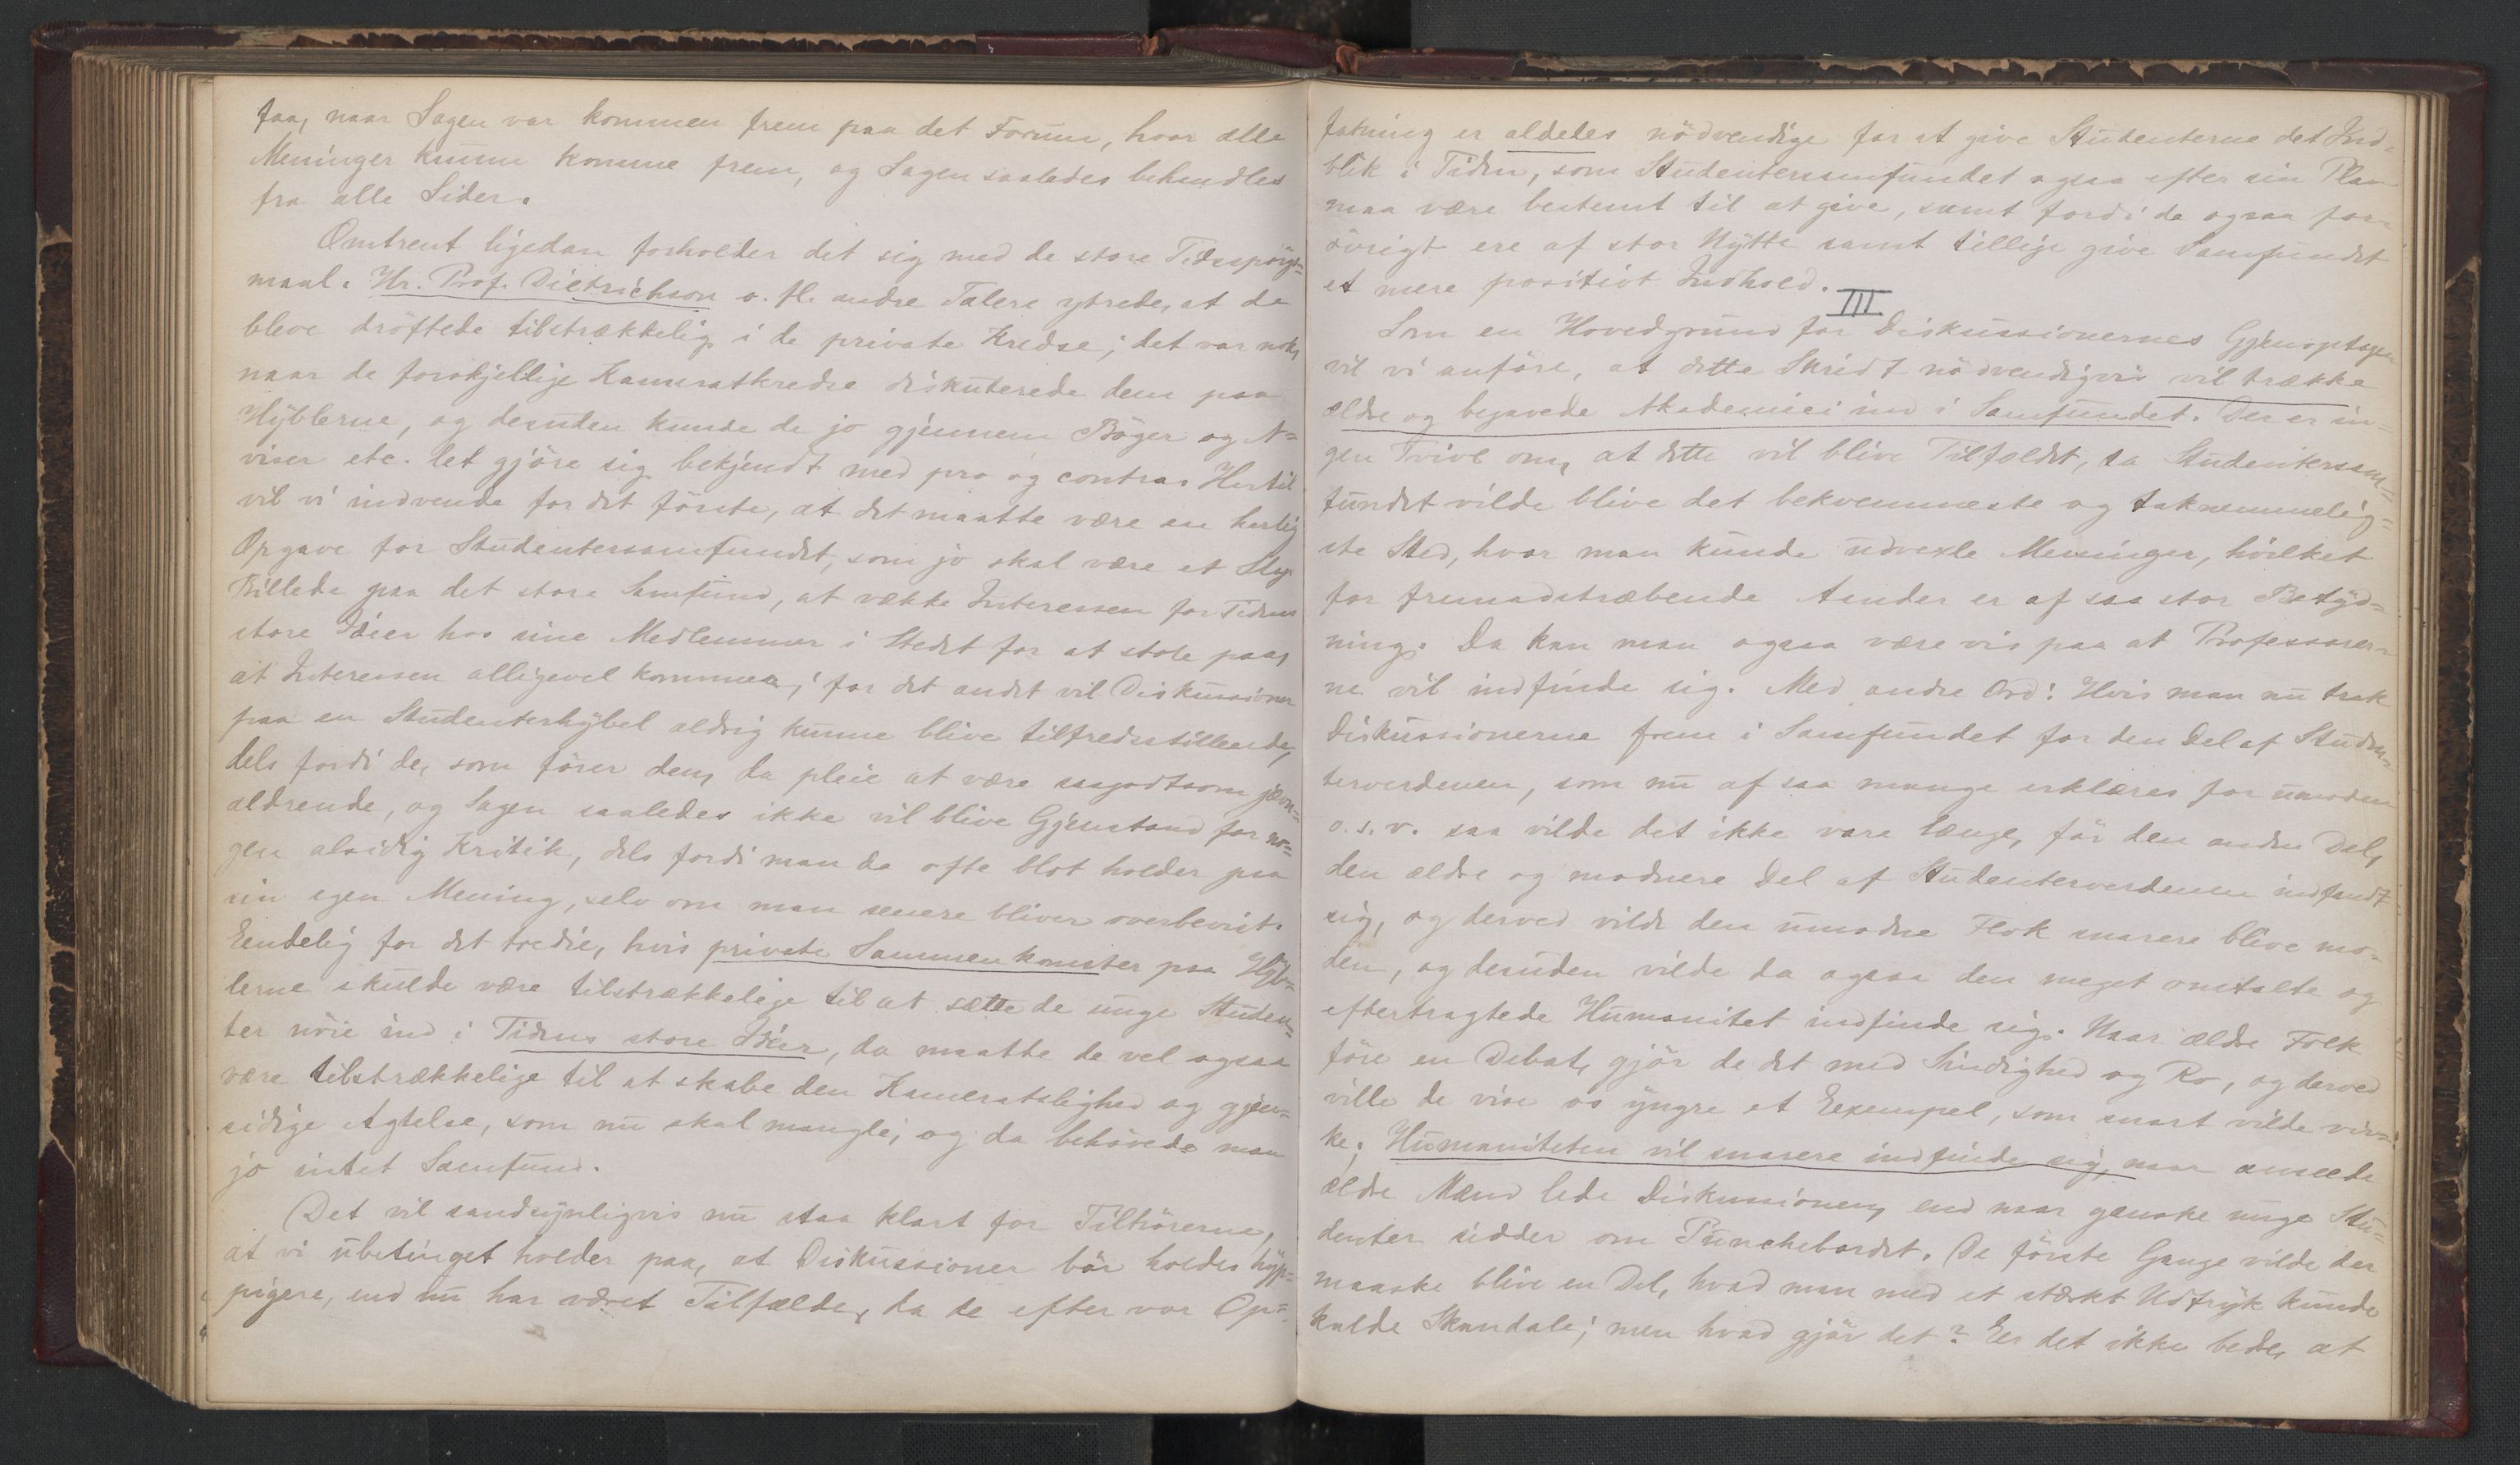 faa, naar Sagen var kommen frem paa det Forum, hvor alle
Meninger kunne komme frem, og Sagen saaledes behandles
fra alle Sider.
Omtrent ligedan forholder det sig med de store Tidsspörgs=
maal. Hr. Prof. Dietrichson o. fl. andre Talere ytrede, at de
bleve dröftede tilstrækkelig i de private Kredse; det var nok,
naar de forskjellige Kameratkredse diskuterede dem paa
Hyblerne, og desuden kunde de jo gjennem Böger og A=
viser etc. let gjöre sig bekjendt med pro og contra. Hertil
vil vi indvende for det förste, at det maatte være en herlig
Opgave for Studentersamfundet, som jo skal være et Slags
Billede paa det store Samfund, at vække Interessen for Tidens
store Ideer hos sine Medlemmer i Stedet for at stole paa,
at Interessen alligevel kommer; for det andet vil Diskussioner
paa en Studenterhybel aldrig kunne blive tilfredsstillende,
dels fordi de, som förer dem, da pleie at være saagodtsom jævn=
aldrende, og Sagen saaledes ikke vil blive Gjenstand for no=
gen alsidig Kritik, dels fordi man da ofte blot holder paa
sin egen Mening, selv om man senere bliver overbevist.
Eendelig for det tredie, hvis private Sammenkomster paa Hyb=
lerne skulde være tilstrækkelige til at sætte de unge Studen=
ter nöie ind i Tidens store Ideer, da maatte de vel ogsaa
være tilstrækkelige til at skabe den Kameratslighed og gjen=
sidige Agtelse, som nu skal mangle; og da behövede man
jo intet Samfund.
Det vil sandsynligvis nu staa klart for Tilhörerne,
at vi ubetinget holder paa, at Diskussioner bör holdes hyp=
pigere, end nu har været Tilfælde, da de efter vor Op=
fatning er aldeles nödvendige for at give Studenterne det Ind=
blik i Tiden, som Studentersamfundet ogsaa efter sin Plan
maa være bestemt til at give, samt fordi de ogsaa for=
övrigt ere af stor Nytte samt tillige give Samfundet
et mere positivt Indhold.
III
Som en Hovedgrund for Diskussionernes Gjenoptagen
vil vi anföre, at dette Skridt nödvendigvis vil trække
ældre og begavede Akademici ind i Samfundet. Der er in=
gen Tvivl om, at dette vil blive Tilfældet, da Studentersam=
fundet vilde blive det bekvemmeste og taknemmelig=
ste Sted, hvor man kunde udvexle Meninger, hvilket
for fremadstræbende Aander er af saa stor Betyd=
ning. Da kan man ogsaa være vis paa at Professorer=
ne vil indfinde sig. Med andre Ord: Hvis man nu trak
Diskussionerne frem i Samfundet for den Del af Studen=
terverdenen, som nu af saa mange erklæres for umoden
o.s.v. saa vilde det ikke vare længe, för den anden Del,
den ældre og modnere Del af Studenterverdenen indfandt
sig, og derved vilde den umodne Flok snarere blive mo=
den, og desuden vilde da ogsaa den meget omtalte og
eftertragtede Humanitet indfinde sig. Naar ældre Folk
före en Debat, gjör de det med Sindighed og Ro, og derved
ville de vise os yngre et Eexempel, som snart vilde vir=
ke; Humaniteten vil snarere indfinde sig, naar ansede
ældre Mænd lede Diskussionen, end naar ganske unge Stu=
denter sidder om Punchebordet. De förste Gange vilde der
maaske blive en Del, hvad man med et stærkt Udtryk kunde
kalde Skandale; men hvad gjör det? Eer det ikke bedre, at